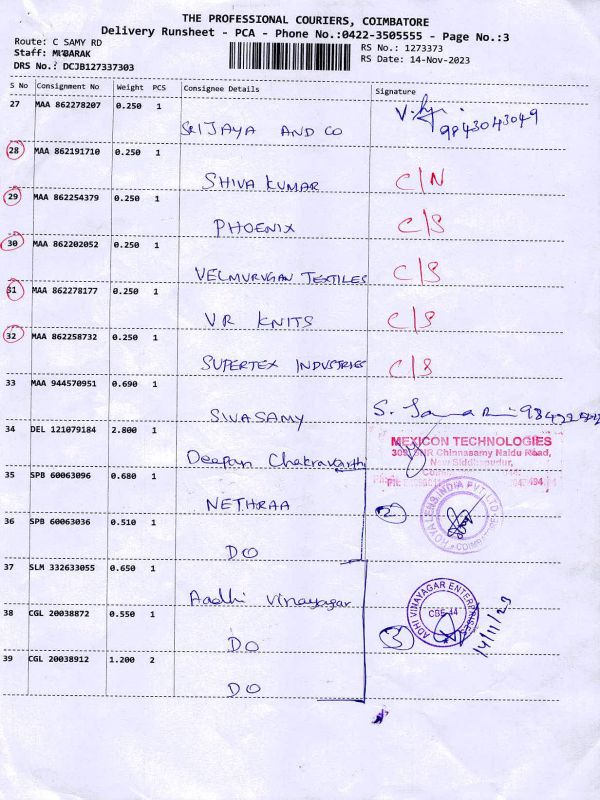 THE PROFESSIONAL COURIERS, COIMBATORE
Delivery Runsheet - PCA - Phone No.:0422-3505555 - Page No.:3
Route: C SAMY RD
RS No.: 1273373
Staff: MUBARAK
RS Date: 14-Nov-2023
DRS No.: DCJB127337303
S No Consignment No Weight PCS Consignee Details Signature
27 MAA 862278207 0.250 1
SRIJAYA AND CO 9843043049
28 MAA 862191710 0.250 1
SHIVA KUMAR C/N
29 MAA 862254379 0.250 1
PHOENIX C/S
30 MAA 862202052 0.250 1
VELMURUGAN TEXTILES C/S
31 MAA 862278177 0.250 1
VR KNITS C/S
32 MAA 862258732 0.250 1
SUPERTEX INDUSTRIES C/S
33 MAA 944570951 0.690 1
SIVASAMY S.
34 DEL 121079184 2.800 1
MEXICON TECHNOLOGIES
Chinnasamy Naidu Road,
New Siddhapudur,
Deepan Chakravarthy
35 SPB 60063096 0.680 1
NETHRAA 2
36 SPB 60063036 0.510 1
DO
37 SLM 332633055 0.650 1
Aadhi Vinayagar
ADHI VINAYAGAR ENTERPRISES
CBE-44
14/11/23
38 CGL 20038872 0.550 1
DO 3
39 CGL 20038912 1.200 2
DO